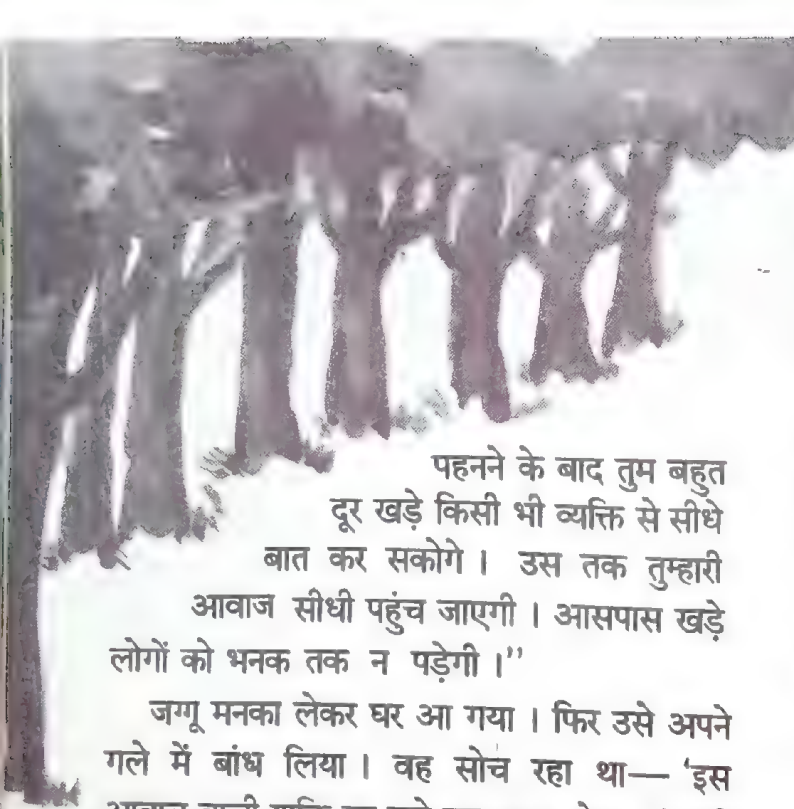 पहनने के बाद तुम बहुत
दूर खड़े किसी भी व्यक्ति से सीधे
बात कर सकोगे । उस तक तुम्हारी
आवाज सीधी पहुंच जाएगी । आसपास खड़े
लोगों को भनक तक न पड़ेगी ।’’
जग्गू मनका लेकर घर आ गया । फिर उसे अपने
गले में बांध लिया । वह सोच रहा था— ‘इस